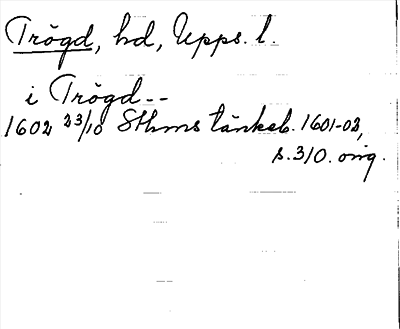 Trögd, hd, Upps. l.
i Trögd--
1602 23/10 Sthms tänkeb. 1601-02,
s. 310. orig.